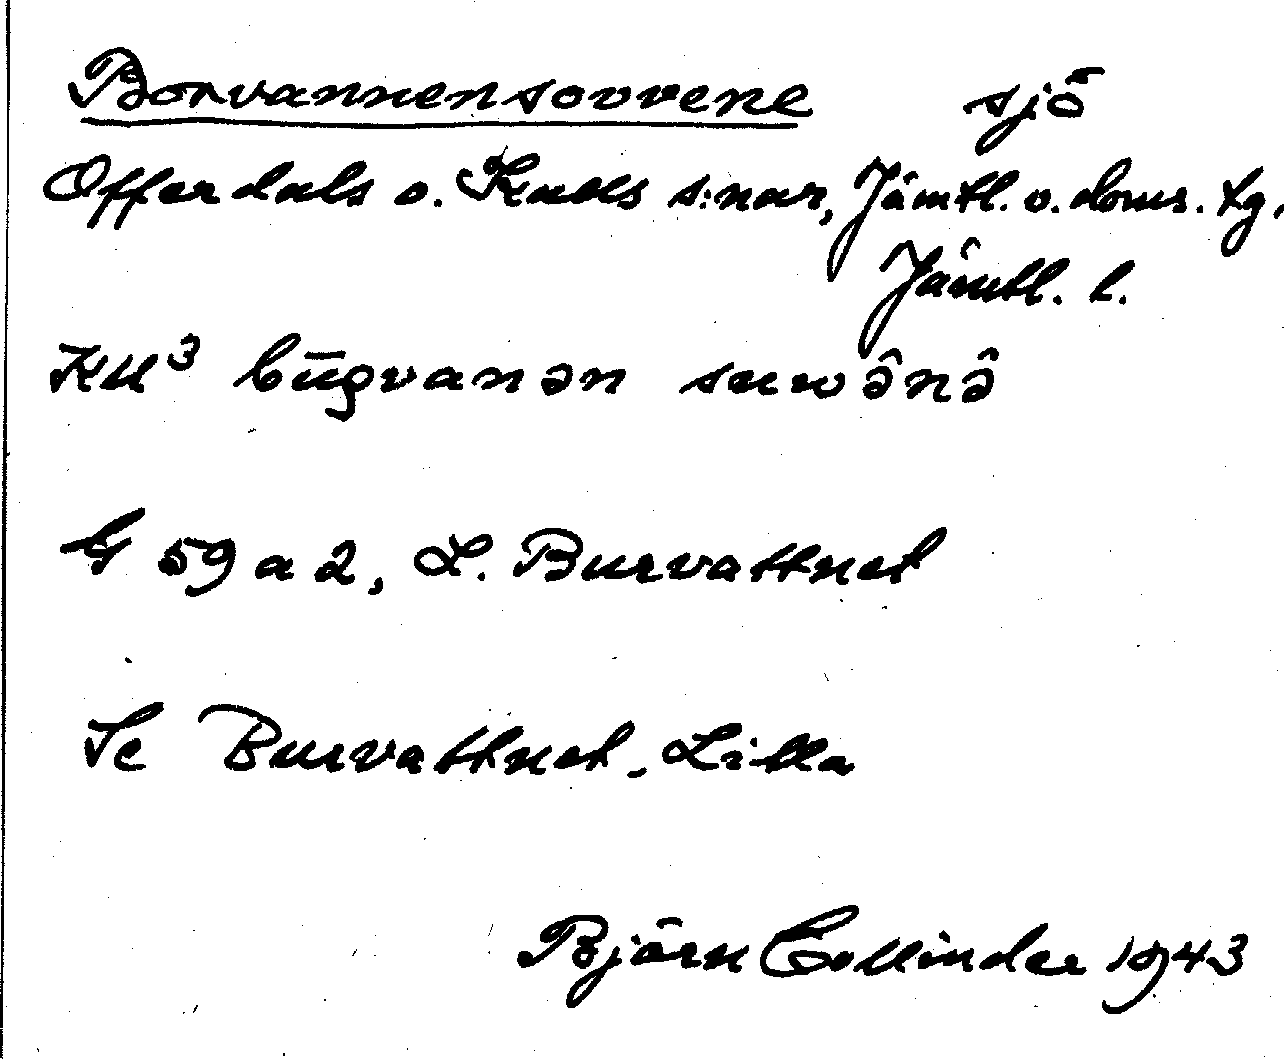 Borvannensovvene sjö
Offerdals o. Kalls s:nar, Jämtl. v. doms. tg,
Jämtl. l.
KU³ būgvanən suwə̂nə̂
G 59 a 2, L. Burvattnet
Se Burvattnet, Lilla
Björn Collinder 1943